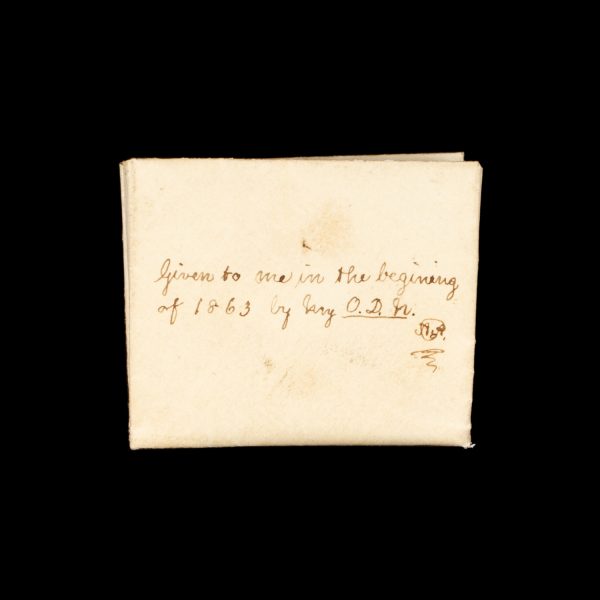 Given to me in the begining
of 1863 by my O.D.N.